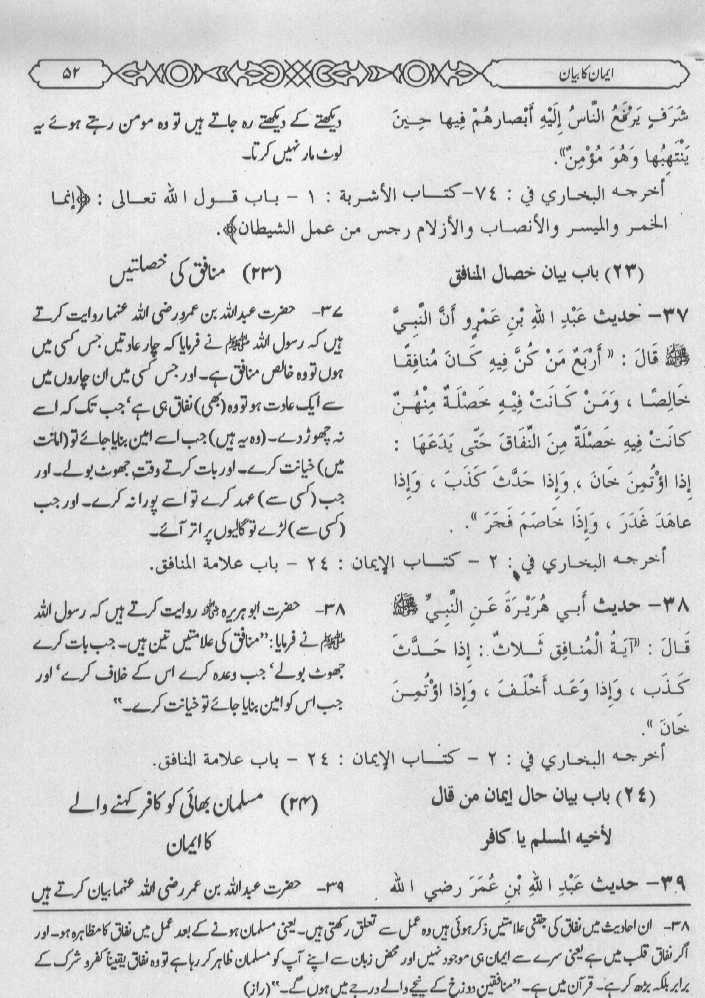 ایمان کا بیان
۵۲
شَرَفٍ يَرْفَعُ النَّاسُ إِلَيْهِ أَبْصارهُمْ فِيها حِينَ
يَنْتَهِبُها وَهُوَ مُؤْمِنٌ».
دیکھتے کے دیکھتے رہ جاتے ہیں تو وہ مومن رہتے ہوئے یہ
لوٹ مار نہیں کرتا۔
أخرجه البخاري في : ٧٤- كتاب الأشربة : ١ - باب قول الله تعالى : ﴿إنما
الخمر والميسر والأنصاب والأزلام رجس من عمل الشيطان﴾.
(٢٣) باب بيان خصال المنافق
(۲۳) منافق کی خصلتیں
٣٧- حديث عَبْدِ اللهِ بْنِ عَمْرٍو أَنَّ النَّبِيَّ
ﷺ قَالَ : « أَرْبَعٌ مَنْ كُنَّ فِيهِ كَانَ مُنافِقًا
خَالِصًا ، وَمَنْ كَانَتْ فِيْهِ خَصْلَةٌ مِنْهُنَّ
كانَتْ فِيهِ خَصْلَةٌ مِنَ النِّفَاقِ حَتَّى يَدَعَهَا :
إِذا اؤْتُمِنَ خَانَ ، وَإِذا حَدَّثَ كَذَبَ ، وَإِذا
عاهَدَ غَدَرَ ، وَإِذَا خَاصَمَ فَجَرَ ».
۳۷- حضرت عبداللہ بن عمرو رضی اللہ عنہما روایت کرتے
ہیں کہ رسول اللہ ﷺ نے فرمایا کہ چار عادتیں جس کسی میں
ہوں تو وہ خالص منافق ہے۔ اور جس کسی میں ان چاروں میں
سے ایک عادت ہو تو وہ (بھی) نفاق ہی ہے‘ جب تک کہ اسے
نہ چھوڑ دے۔ (وہ یہ ہیں) جب اسے امین بنایا جائے تو (امانت
میں) خیانت کرے۔ اور بات کرتے وقت جھوٹ بولے۔ اور
جب (کسی سے) عہد کرے تو اسے پورا نہ کرے۔ اور جب
(کسی سے) لڑے تو گالیوں پر اتر آئے۔
أخرجه البخاري في : ٢ - كتاب الإيمان : ٢٤ - باب علامة المنافق.
٣٨- حديث أَبي هُرَيْرَةَ عَنِ النَّبِيِّ ﷺ
قَالَ : «آيَةُ الْمُنافِقِ ثَلاثٌ : إِذا حَدَّثَ
كَذَب ، وَإِذا وَعَد أَخْلَفَ ، وَإِذا اؤْتُمِنَ
خَانَ ».
۳۸- حضرت ابو ہریرہ ؓ روایت کرتے ہیں کہ رسول اللہ
ﷺ نے فرمایا: ”منافق کی علامتیں تین ہیں۔ جب بات کرے
جھوٹ بولے‘ جب وعدہ کرے اس کے خلاف کرے‘ اور
جب اس کو امین بنایا جائے تو خیانت کرے۔“
أخرجه البخاري في : ٢ - كتاب الإيمان : ٢٤ - باب علامة المنافق.
(٢٤) باب بيان حال إيمان من قال
لأخيه المسلم يا كافر
(۲۴) مسلمان بھائی کو کافر کہنے والے
کا ایمان
٣٩- حديث عَبْدِ اللهِ بْنِ عُمَرَ رضي الله
۳۹- حضرت عبداللہ بن عمر رضی اللہ عنہما بیان کرتے ہیں
۳۸- ان احادیث میں نفاق کی جتنی علامتیں ذکر ہوئی ہیں وہ عمل سے تعلق رکھتی ہیں۔ یعنی مسلمان ہونے کے بعد عمل میں نفاق کا مظاہرہ ہو۔ اور
اگر نفاق قلب میں ہے یعنی سرے سے ایمان ہی موجود نہیں اور محض زبان سے اپنے آپ کو مسلمان ظاہر کر رہا ہے تو وہ نفاق یقیناً کفر و شرک کے
برابر بلکہ بڑھ کر ہے۔ قرآن میں ہے۔ ”منافقین دوزخ کے نیچے والے درجے میں ہوں گے۔“ (راز)